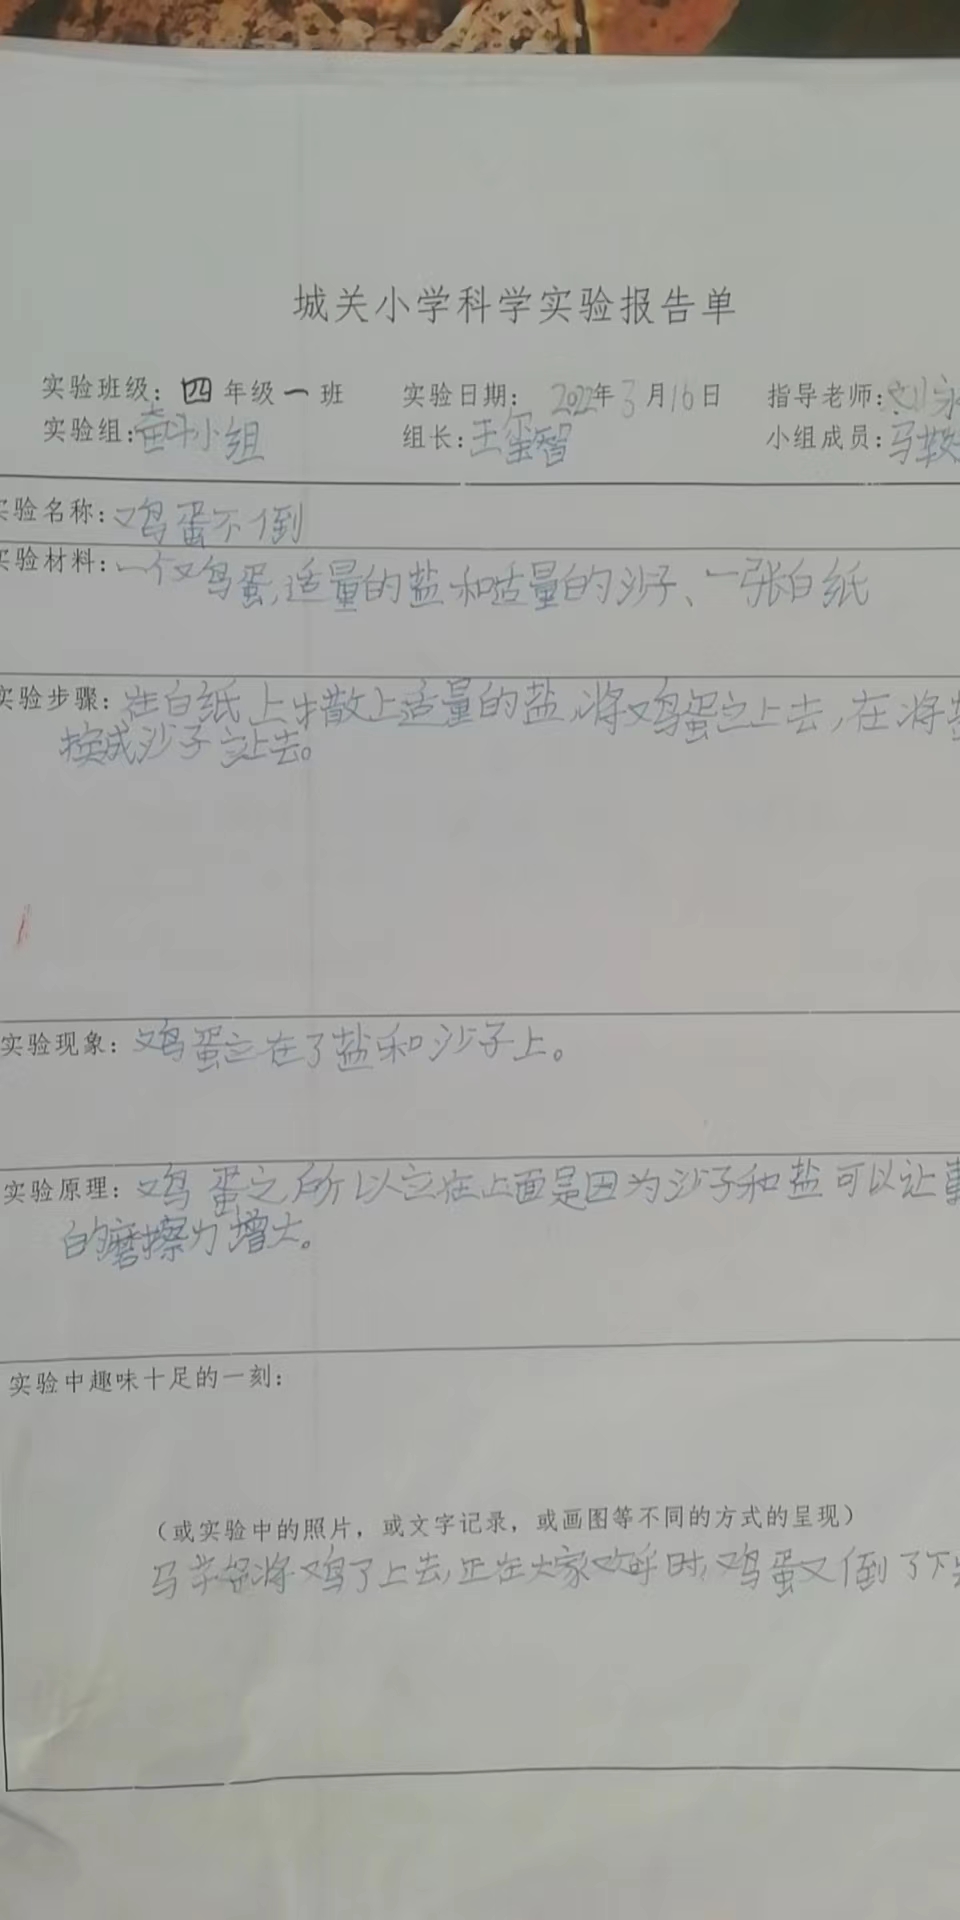 城关小学科学实验报告单
实验班级：四年级一班 实验日期：2022年3月16日 指导老师：刘永
实验组：小组 组长：王玺智 小组成员：马
实验名称：鸡蛋不倒
实验材料：一个鸡蛋,适量的盐和适量的沙子、一张白纸
实验步骤：在白纸上散上适量的盐,将鸡蛋立上去,在将
换成沙子立上去。
实验现象：鸡蛋立在了盐和沙子上。
实验原理：鸡蛋之所以立在上面是因为沙子和盐可以让
的摩擦力增大。
实验中趣味十足的一刻：
（或实验中的照片，或文字记录，或画图等不同的方式的呈现）
马将鸡了上去,正在大家欢呼时,鸡蛋又倒了下